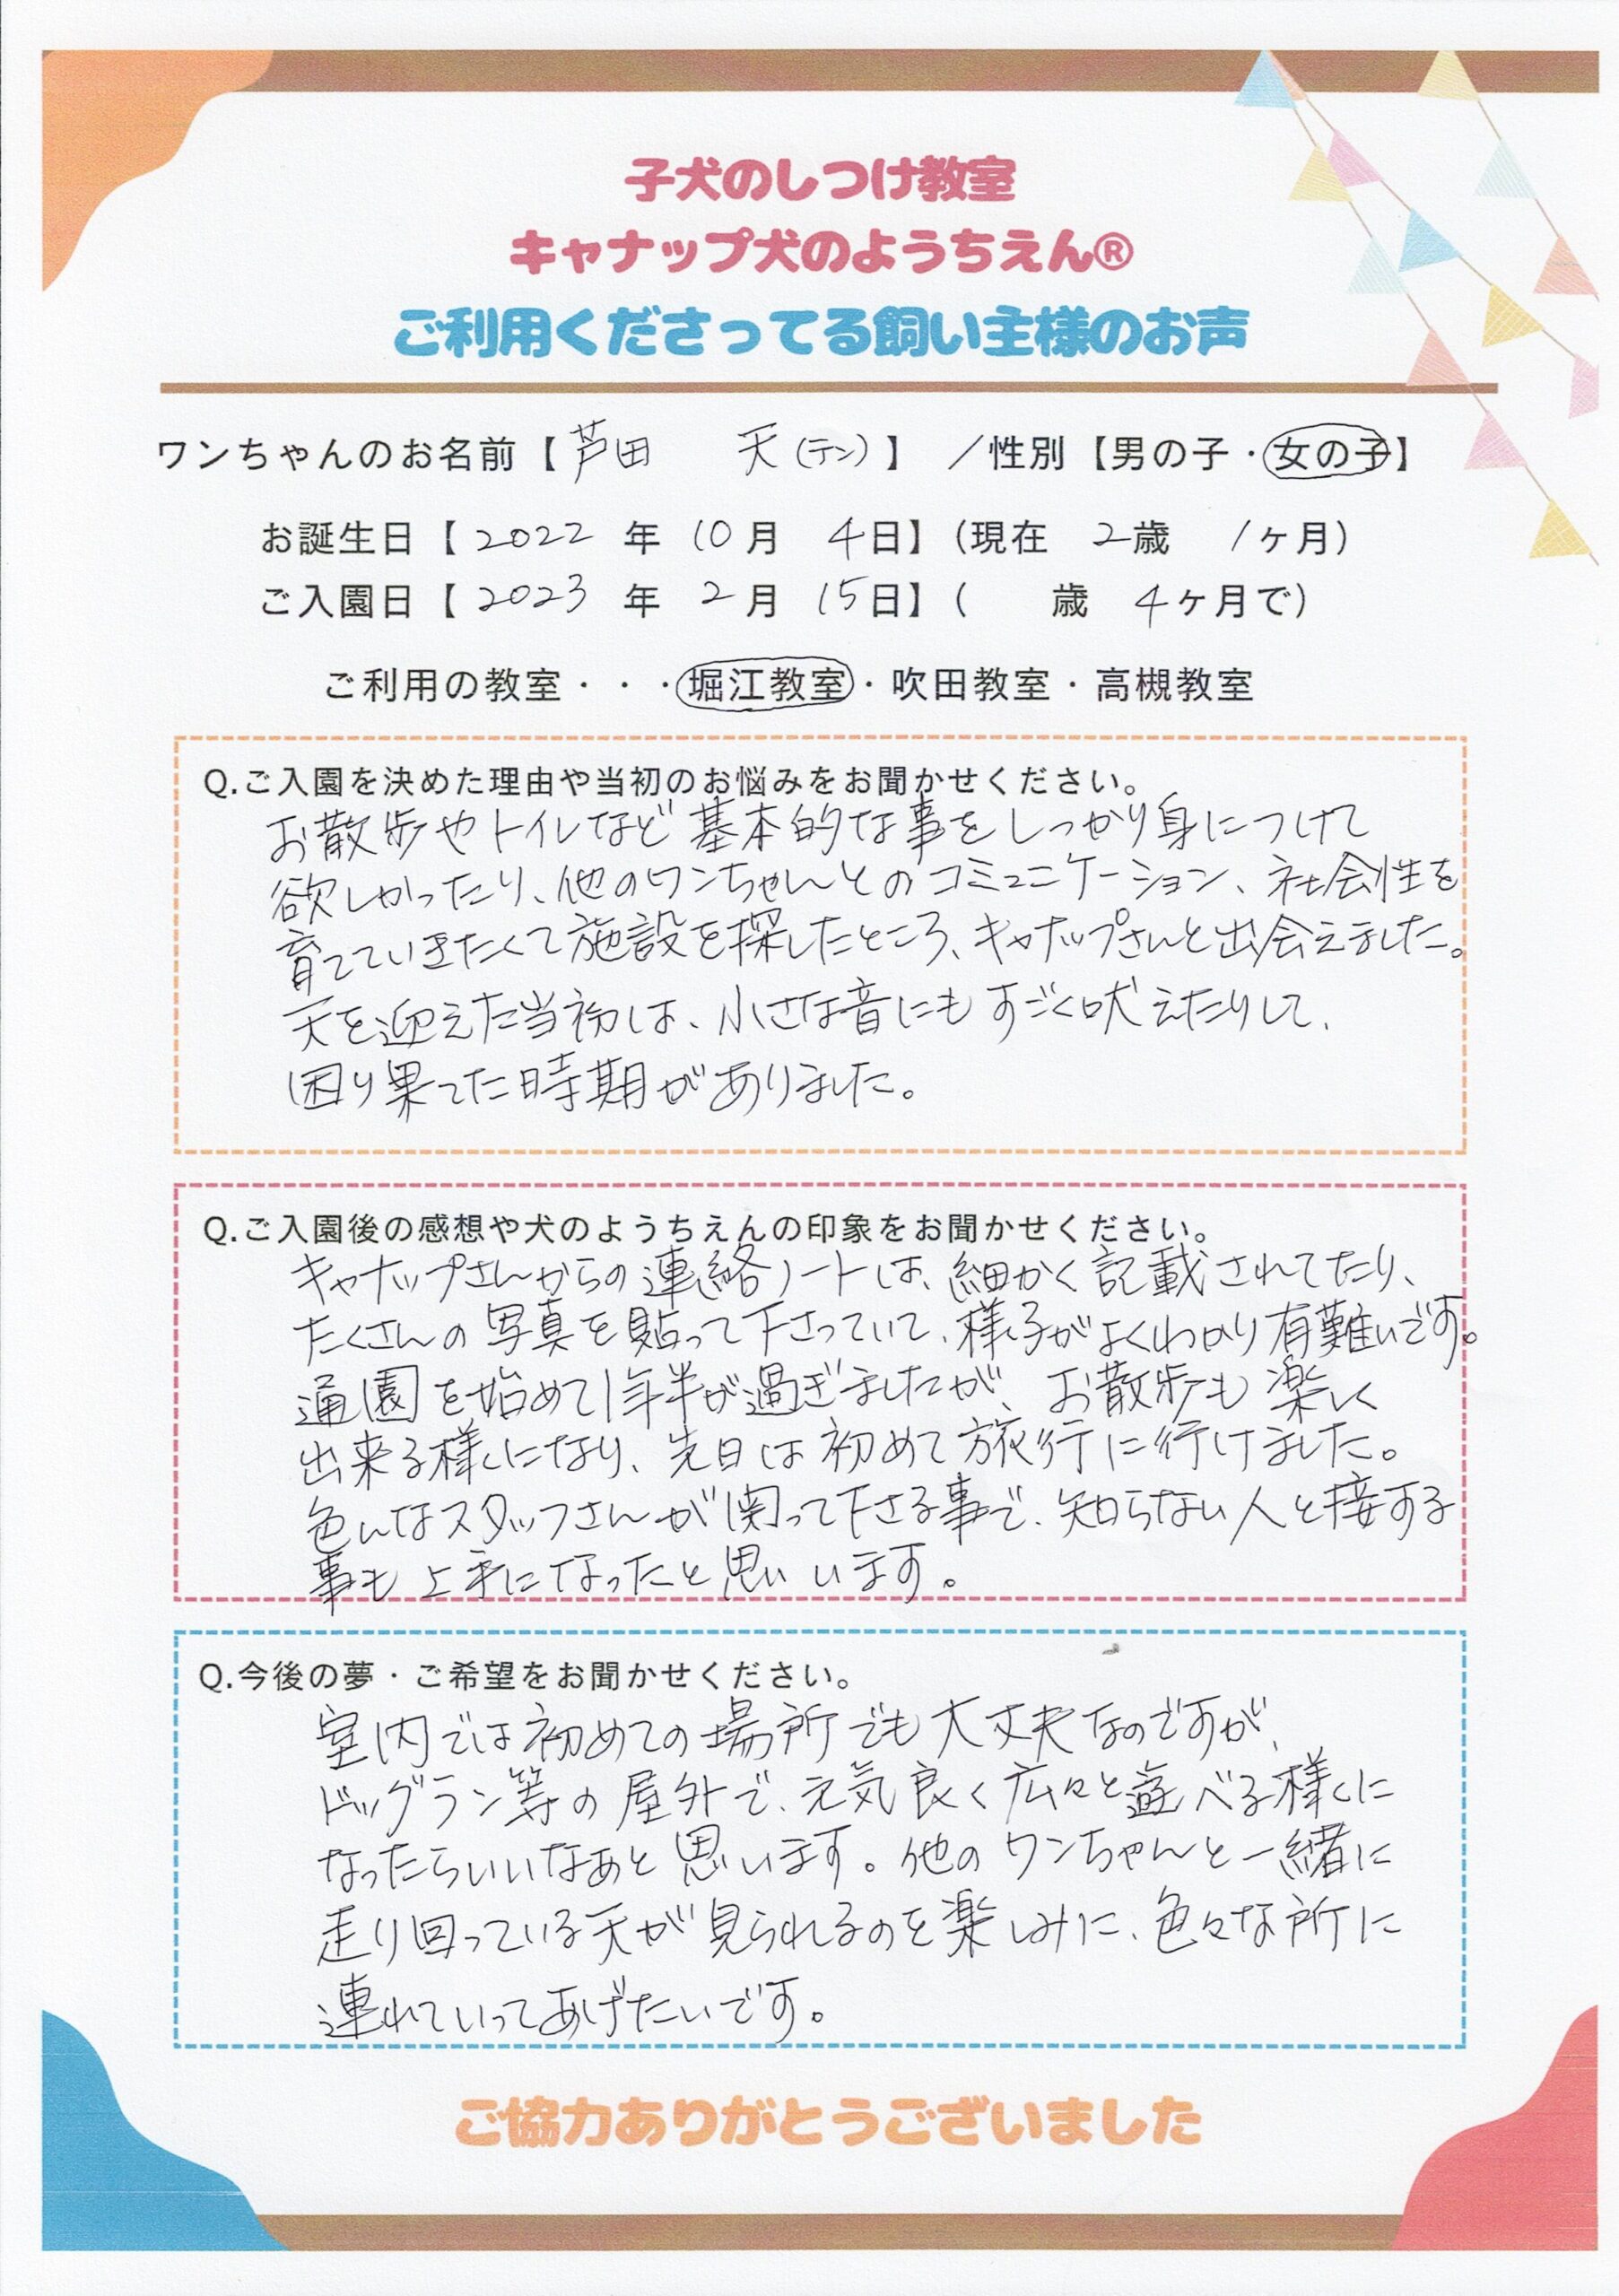 子犬のしつけ教室
キャナップ犬のようちえん®
ご利用くださってる飼い主様のお声
ワンちゃんのお名前【芦田 天(テン)】 ／性別【男の子・女の子】
お誕生日【2022年10月4日】(現在 2歳 1ヶ月)
ご入園日【2023年2月15日】( 歳 4ヶ月で)
ご利用の教室・・・堀江教室・吹田教室・高槻教室
Q.ご入園を決めた理由や当初のお悩みをお聞かせください。
お散歩やトイレなど基本的な事をしっかり身につけて
欲しかったり、他のワンちゃんとのコミュニケーション、社会性を
育てていきたくて施設を探したところ、キャナップさんと出会えました。
天を迎えた当初は、小さな音にもすごく吠えたりして、
困り果てた時期がありました。
Q.ご入園後の感想や犬のようちえんの印象をお聞かせください。
キャナップさんからの連絡ノートは、細かく記載されてたり、
たくさんの写真を貼って下さっていて、様子がよくわかり有難いです。
通園を始めて1年半が過ぎましたが、お散歩も楽しく
出来る様になり、先日は初めて旅行に行けました。
色んなスタッフさんが関って下さる事で、知らない人と接する
事も上手になったと思います。
Q.今後の夢・ご希望をお聞かせください。
室内では初めての場所でも大丈夫なのですが、
ドッグラン等の屋外で、元気良く広々と遊べる様に
なったらいいなぁと思います。他のワンちゃんと一緒に
走り回っている天が見られるのを楽しみに、色々な所に
連れていってあげたいです。
ご協力ありがとうございました